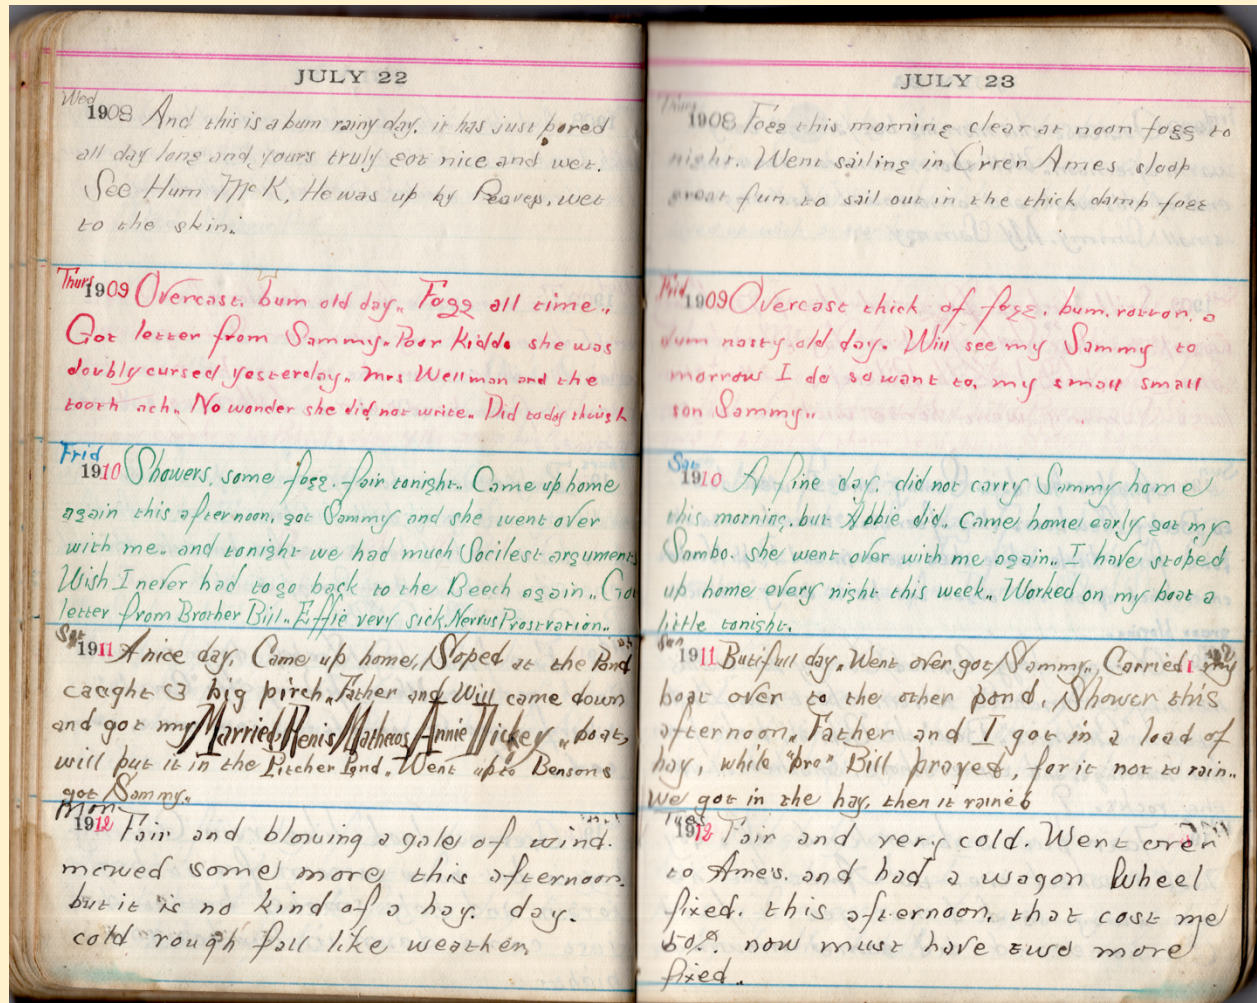 JULY 22
Wed
1908 And this is a bum rainy day. it has just pored
all day long and yours truly got nice and wet.
See Hum McK, He was up by Peaveys, wet
to the skin.
Thurs
1909 Overcast. bum old day.. Fogg all time..
Got letter from Sammy.. Poor Kiddo she was
doubly cursed yesterday.. Mrs Wellman and the
tooth ach.. No wonder she did not write.. Did today though
Frid
1910 Showers, some fogg. fair tonight.. Came up home
again this afternoon, got Sammy and she went over
with me.. and tonight we had much Socilest arguments
Wish I never had to go back to the Beech again.. Got
letter from Brother Bill.. Effie very sick, Nervus Prostration..
Sat
1911 A nice day, Came up home, Soped at the Pond
caught 3 big pirch.. Father and Will came down
and got my Married, Renis Mathews Annie Dickey .. boat,
will put it in the Pitcher Pond.. Went up to Bensons
got Sammy..
Mon
1912 Fair and blowing a gale of wind.
mowed some more this afternoon.
but it is no kind of a hay. day.
cold rough fall like weather
JULY 23
Thurs
1908 Fogg this morning clear at noon fogg to
night. Went sailing in Orren Ames sloop
great fun to sail out in the thick damp fogg
Frid
1909 Overcast thick of fogg. bum, rotton, a
dum nasty old day. Will see my Sammy to
morrow I do so want to, my small small
son Sammy..
Sat
1910 A fine day. did not carry Sammy home
this morning, but Abbie did.. Came home early got my
Sambo. she went over with me again.. I have stoped
up home every night this week.. Worked on my boat a
little tonight.
Sun
1911 Butifull day.. Went over got Sammy.. Carried my
boat over to the other pond, Shower this
afternoon.. Father and I got in a load of
hay, while "pro" Bill prayed, for it not to rain..
We got in the hay, then it rained
Tues
1912 Fair and very cold. Went over
to Ames. and had a wagon wheel
fixed. this afternoon, that cost me
50.¢. now must have two more
fixed..